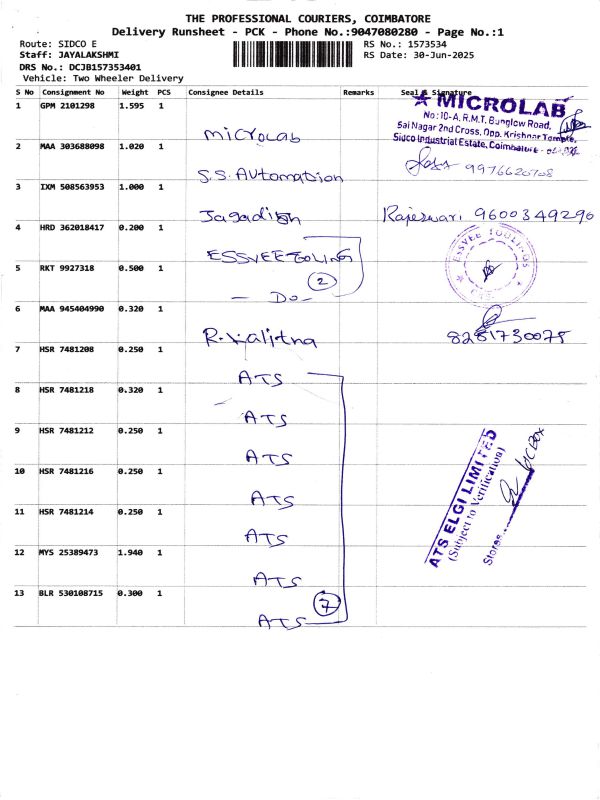 THE PROFESSIONAL COURIERS, COIMBATORE
Delivery Runsheet - PCK - Phone No.:9047080280 - Page No.:1
Route: SIDCO E
RS No.: 1573534
Staff: JAYALAKSHMI
RS Date: 30-Jun-2025
DRS No.: DCJB157353401
Vehicle: Two Wheeler Delivery
S No Consignment No Weight PCS Consignee Details Remarks Seal & Signature
1 GPM 2101298 1.595 1 Microlab
★ MICROLAB
No:10-A, R.M.T. Bunglow Road,
Sai Nagar 2nd Cross, Opp. Krishnar Temple,
Sidco Industrial Estate, Coimbatore -
2 MAA 303688098 1.020 1 S.S. Automation
9976620708
3 IXM 508563953 1.000 1 Jagadish Rajeswari 9600349290
4 HRD 362018417 0.200 1 ESSVEE TOOLING
ESSVEE TOOLINGS
5 RKT 9927318 0.500 1 - Do - 2
6 MAA 945404990 0.320 1 8281730078
7 HSR 7481208 0.250 1 ATS
8 HSR 7481218 0.320 1 ATS
9 HSR 7481212 0.250 1 ATS
10 HSR 7481216 0.250 1 ATS
11 HSR 7481214 0.250 1 ATS
12 MYS 25389473 1.940 1 ATS
13 BLR 530108715 0.300 1 ATS 7
ATS ELGI LIMITED
(Subject to Verification)
Stores